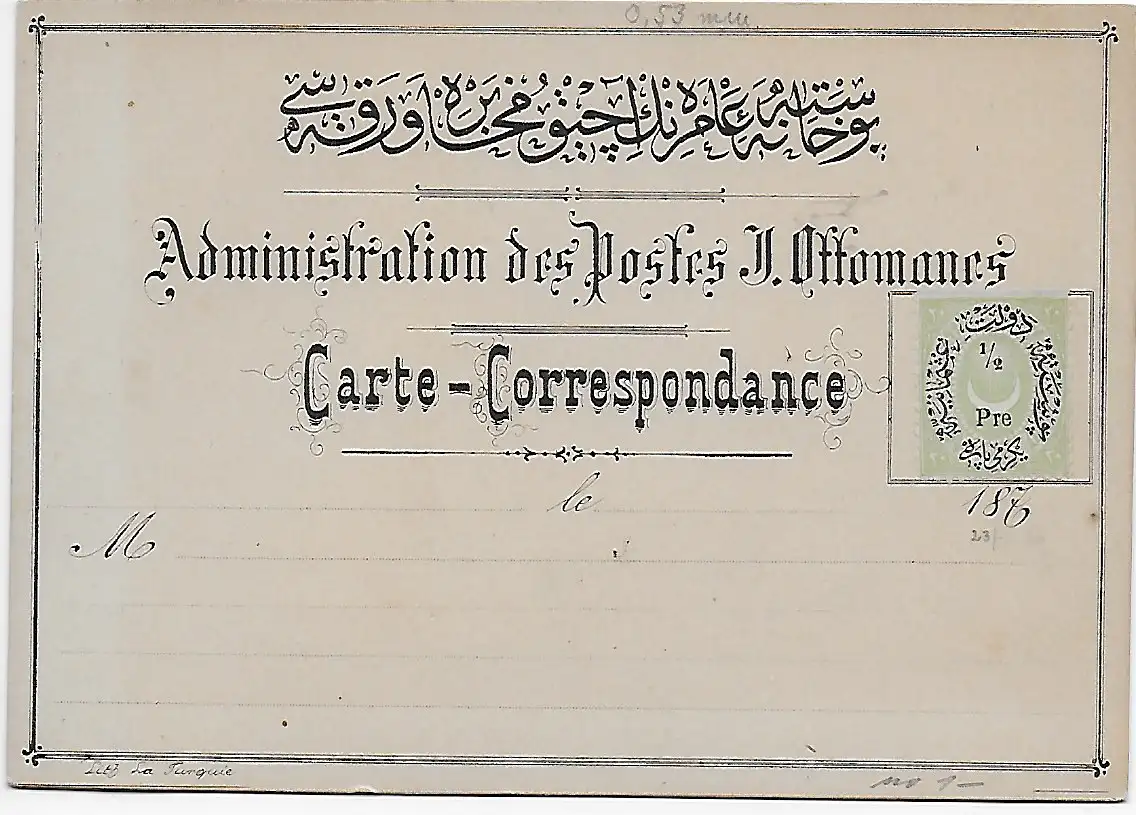 0,53 mm.
پوستخانه عامره نك آچيق مخابره ورقه سى
Administration des Postes I. Ottomanes
Carte-Correspondance
دولت
1/2
Pre
يكرمى پاره
le
187
23
M
Lith La Turquie
no 1-